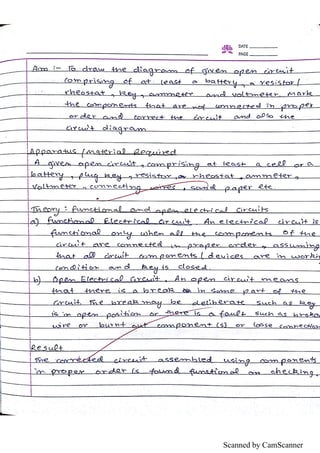 DATE
PAGE
Aim :- To draw the diagram of given open circuit
comprising of at least a battery, a resistor/
rheostat, key, ammeter and voltmeter. Mark
the components that are not connected in proper
order and correct the circuit and also the
circuit diagram
Apparatus/Material Required
A given open circuit, comprising at least a cell or a
battery, plug key, resistor, a rheostat, ammeter,
voltmeter, connecting wires, sand paper etc
Theory: Functional and open electrical circuits
a) Functional Electrical Circuit. An electrical circuit is
functional only when all the components of the
circuit are connected in proper order, assuming
that all circuit components/devices are in workin
condition and key is closed.
b) Open Electrical Circuit. An open circuit means
that there is a break in some part of the
circuit. The break may be deliberate such as key
is in open position or there is a fault such as broke
wire or burnt out component(s) or loose connection
Result
The corrected circuit assembled using components
in proper order is found functional on checking.
Scanned by CamScanner